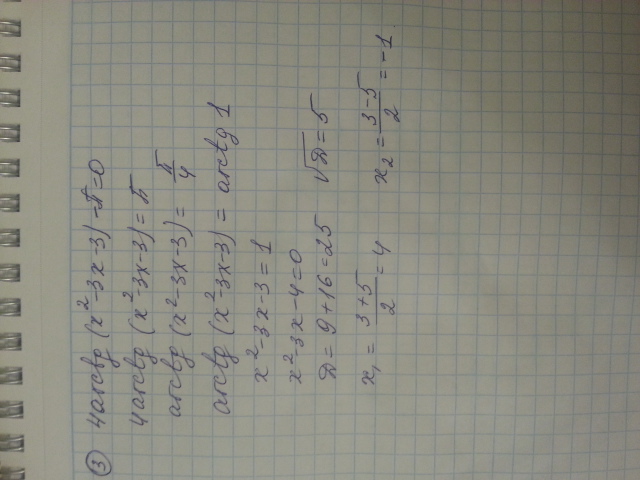 ③ 4arctg (x²-3x-3)-π=0
4arctg (x²-3x-3)=π
arctg (x²-3x-3)= π/4
arctg (x²-3x-3)= arctg 1
x²-3x-3=1
x²-3x-4=0
D=9+16=25 √D=5
x₁= (3+5)/2 =4 x₂= (3-5)/2 =-1.